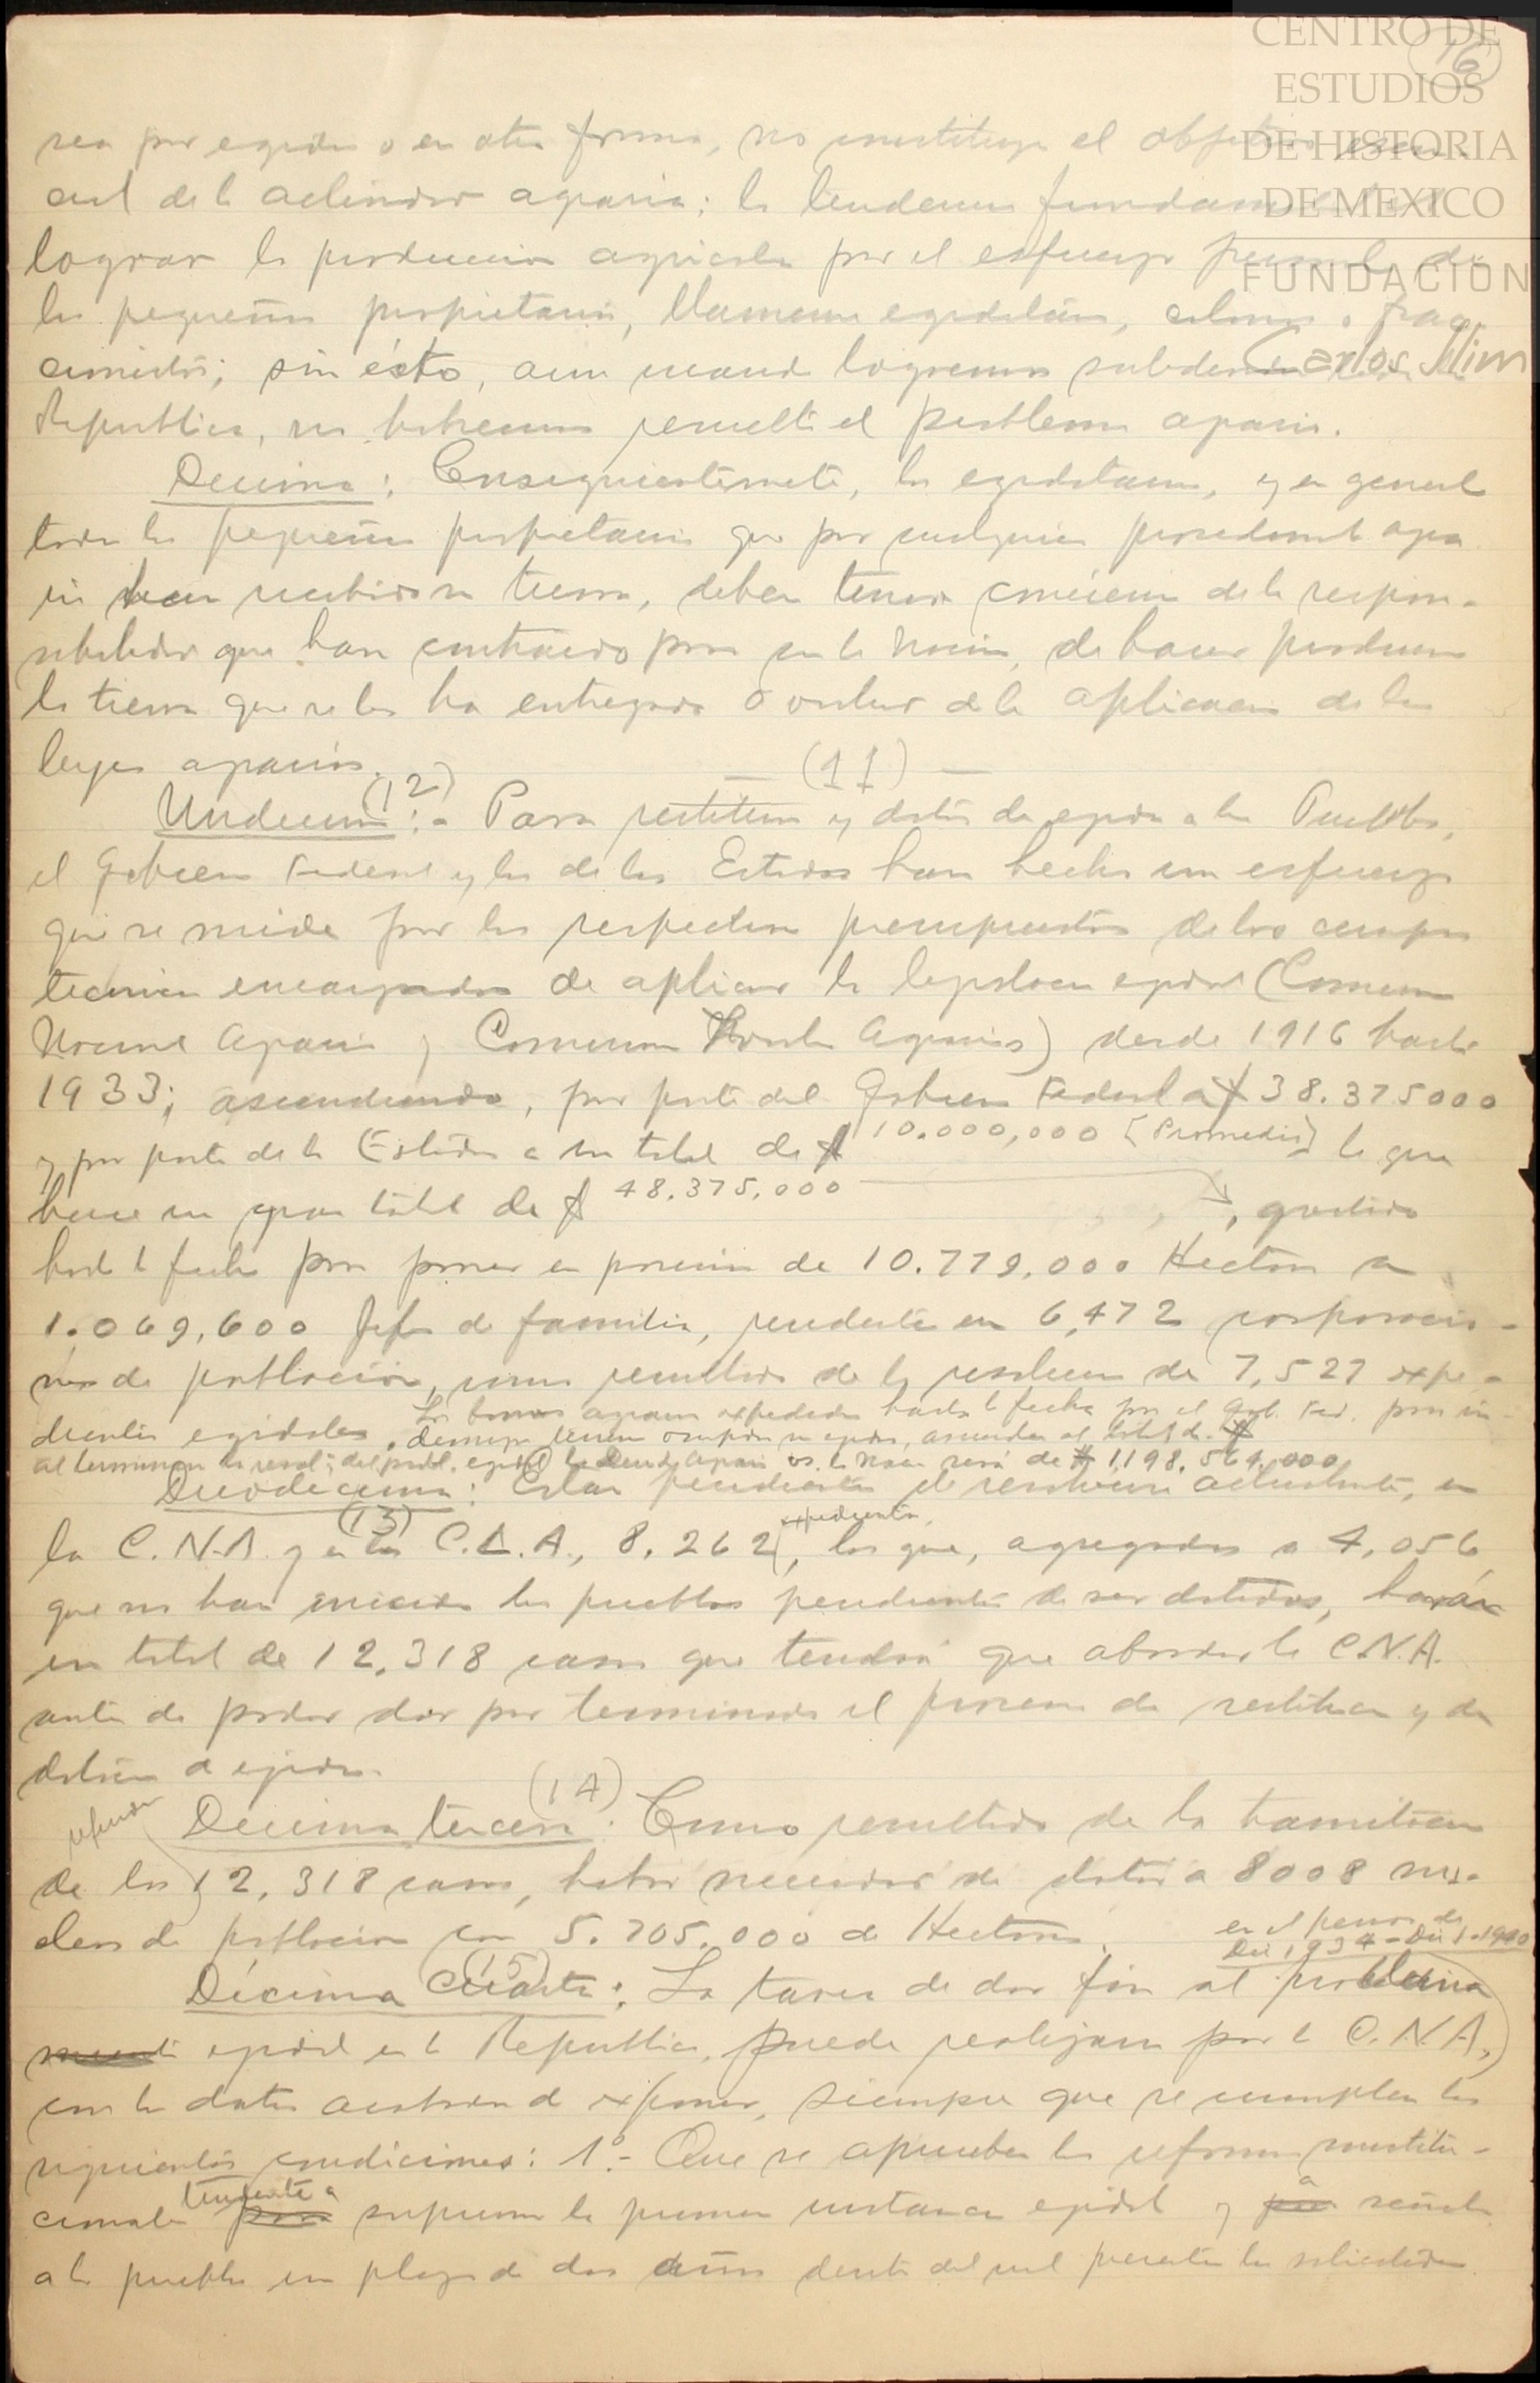 CENTRO DE
ESTUDIOS
DE HISTORIA
DE MEXICO
FUNDACIÓN
Carlos Slim
16
sea por egidos o en otra forma, no constituye el objetivo esen-
cial de la actividad agraria; la tendencia fundamental es
lograr la produccion agricola por el esfuerzo personal de
los pequeños propietarios, llamense egidatarios, colonos o frac
cionistas; sin ésto, aun cuando logremos subdividir
Republica, no habremos resuelto el problema agrario.
Decima: Consiguientemente, los egidatarios, y en general
todos los pequeños propietarios que por cualquier procedimiento agra
rio han recibido su tierra, deben tener conciencia de la respon-
sabilidad que han contraido para con la Nacion, de hacer producir
la tierra que se les ha entregado o de la aplicacion de las
leyes agrarias.
— (11) —
(12)
Undecima:- Para restituir y dotar de egidos a los Pueblos,
el Gobierno Federal y los de los Estados han hecho un esfuerzo
que se mide por los respectivos presupuestos de los cuerpos
tecnicos encargados de aplicar la legislacion egidal (Comision
Nacional Agraria y Comisiones Locales Agrarias) desde 1916 hasta
1933; ascendiendo, por parte del Gobierno Federal a $ 38.375000
y por parte de los Estados a un total de $ 10.000,000 [Promedio] lo que
hace un gran total de $ 48.375,000 , gastado
hasta la fecha para poner en posesion de 10.779.000 Hectaras a
1.069,600 Jefes de familia, residentes en 6,472 corporacio-
nes de poblacion, como resultado de la resolucion de 7,527 expe-
dientes egidales. Los bonos agrarios expedidos hasta la fecha por el Gob. Fed. para in-
demnizar terrenos ocupados en egidos, ascienden al total de $
al terminar la resol. del probl. egidal la Deuda Agraria de la Nacion será de $ 1,198,564,000
Duodecima: Estan pendientes de resolverse actualmente, en
(13)
la C.N.A. y en las C.L.A., 8.262 expedientes, los que, agregados a 4,056
que no han iniciado los pueblos pendientes de ser dotados, harán
un total de 12,318 casos que tendrá que abordar la C.N.A.
antes de poder dar por terminado el proceso de restitucion y de
dotacion de egidos.
(14)
Decima tercera: Como resultado de la tramitacion
de los referidos 12,318 casos, habrá necesidad de dotar a 8008 nu-
cleos de poblacion con 5.705.000 de Hectaras.
en el periodo de
Dic 1934 - Dic 1-1940
(15)
Décima Cuarta: La tarea de dar fin al problema
egidal en la Republica, puede realizarse por la C.N.A.,
con los datos que se acaban de exponer, siempre que se cumplan las
siguientes condiciones: 1º.- Que se aprueben las reformas constitu-
cionales tendientes a para suprimir la primera instancia egidal y a señalar
a los pueblos un plazo de dos años dentro del cual presenten las solicitudes